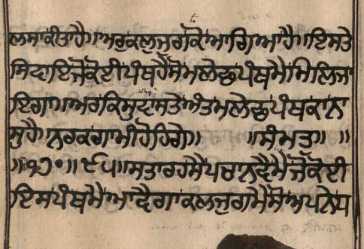 ਲਸਾਕੀਤਾਹੈ॥ਅਰਕਲਜੁਗਕੋਆਗਿਆਹੈ॥ਇਸਤੇ
ਸਿਵਾਇਜੋਕੋਈਪੰਥਹੈਸੋਮਲੇਛਪੰਥਮੈਮਿਲਿਜਾ
ਇਗਾ॥ਅਰਕਿਸੁਵਾਸਤੇਅੰਤਮਲੇਛਪੰਥਕਾਨਾ
ਸੁਹੈ॥ਨਰਕਗਾਮੀਹੋਹਿਗੇ॥ ॥ਸੰਮਤੁ॥
॥੧੭੦॥੯੫॥ਸਤਾਰਹਸੈਪਚਾਨਵੈਮੈਜੋਕੋਈ
ਇਸਪੰਥਮੈਆਵੈਗਾਕਲਜੁਗਮੈਸੋਅਪਨੇਧ